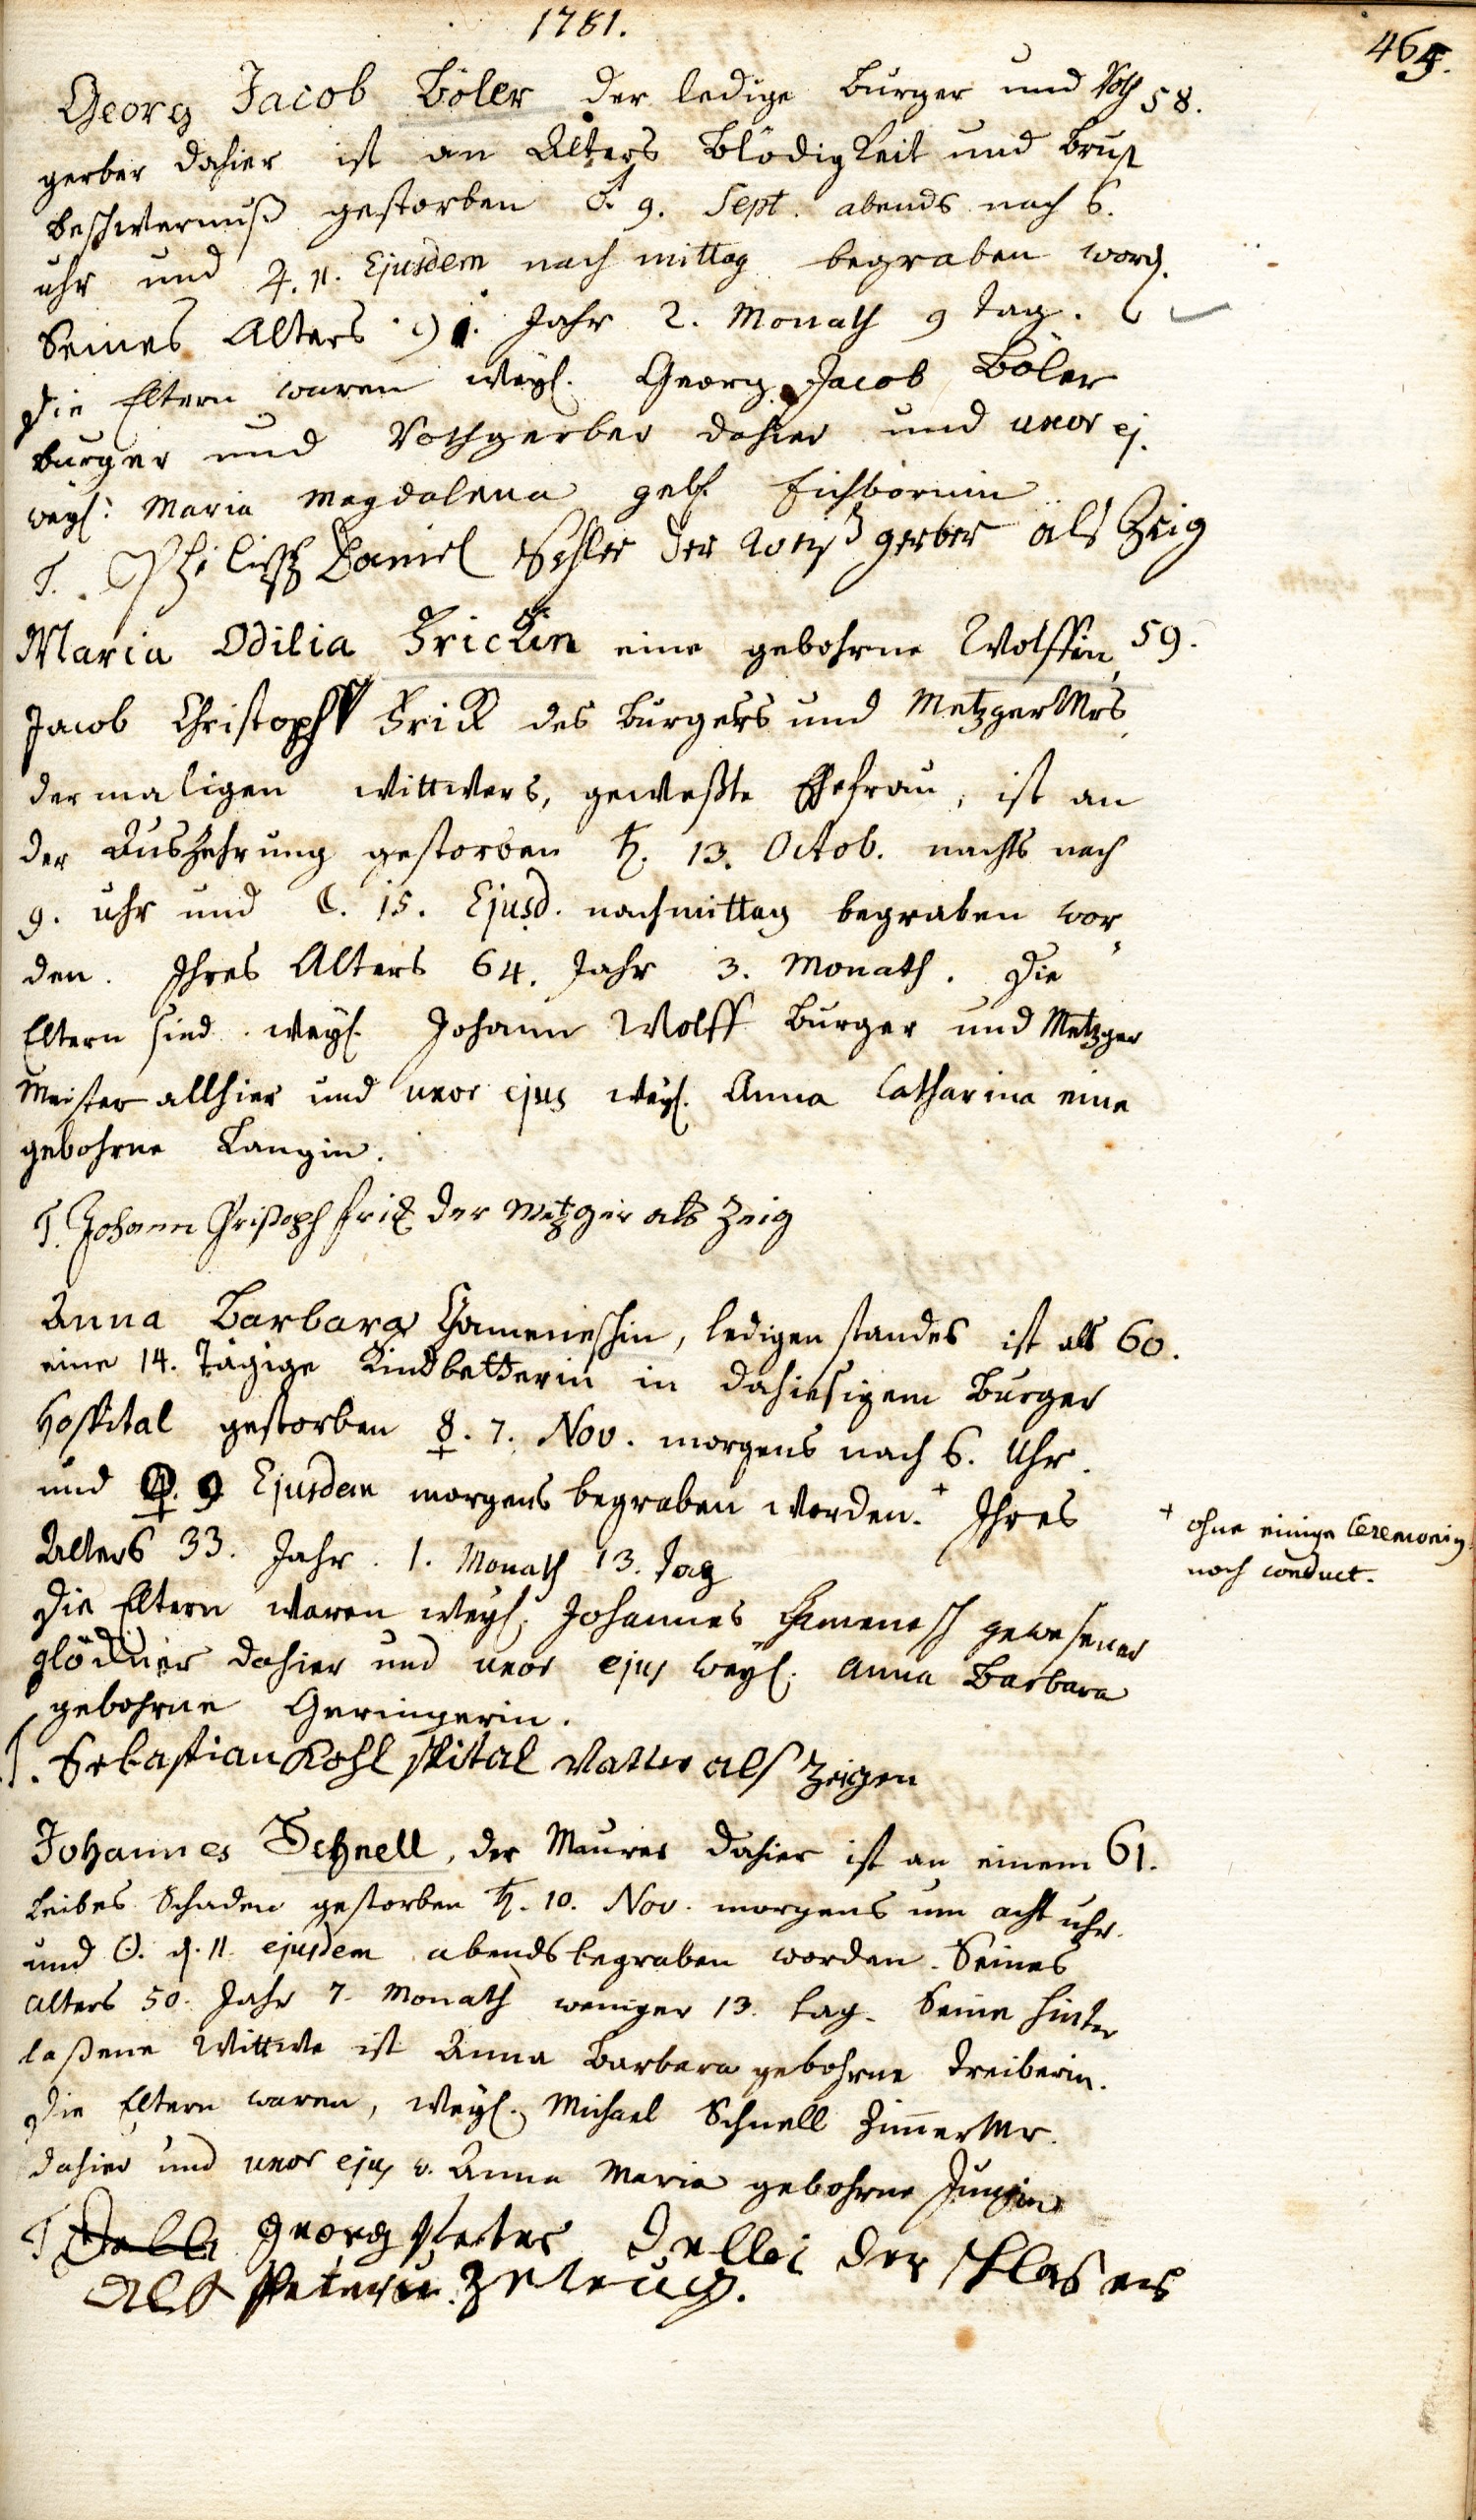 1781.
465.
Georg Jacob Böler der ledige Burger und Roth 58.
gerber dahier ist an Alters Blödigkeit und Brust
beschwernuß gestorben ☉. 9. Sept. abends nach 6.
uhr und ♂. 11. Ejusdem nach mittag begraben word.
Seines Alters 71. Jahr 2. Monath 9 tag.
Die Eltern waren weyl. Georg Jacob Böler
burger und Rothgerber dahier und uxor ej.
weyl. Maria Magdalena geb. Eichbornin
T. Philipp Daniel der weyß gerber als Zeig
Maria Odilia Frickin eine gebohrne Wolffin, 59.
Jacob Christoph Frick des burgers und MetzgerMrs
dermaligen wittwers, geweßte Ehefrau, ist an
der Auszehrung gestorben ♄. 13. Octob. nachts nach
9. uhr und ☾. 15. Ejusd. nachmittag begraben wor
den. Ihres Alters 64. Jahr 3. Monath. Die
Eltern sind weyl. Johann Wolff burger und Metzger
Meister allhier und uxor ejus weyl. Anna Catharina eine
gebohrne Langin.
T. Johann Christoph frick der Metzger als Zeig
Anna Barbara Hameneschin, ledigen standes ist als 60.
eine 14. tägige Kindbetterin in dahiesigem Burger
Hospital gestorben ☿. 7. Nov. morgens nach 6. Uhr.
und ♀. 9 Ejusdem morgens begraben worden. + Ihres
+ ohne einige Ceremonien
noch conduct.
Alters 33. Jahr. 1. Monath 13. tag
Die Eltern waren weyl. Johannes Hamenesch gewesener
glöckner dahier und uxor ejus weyl. Anna Barbara
gebohrne Geringerin.
T. Sebastian Kohl spital Vatter als zeigen
Johannes Schnell, der Maurer dahier ist an einem 61.
Leibes Schaden gestorben ♄. 10. Nov. morgens um acht uhr.
und ☉. d. 11. ejusdem abends begraben worden. Seines
alters 50. Jahr 7. Monath weniger 13. tag. Seine hinter
laßene Wittwe ist Anna Barbara gebohrne Treiberin.
Die Eltern waren, weyl. Michael Schnell ZimmerMr.
dahier und uxor ejus v. Anna Maria gebohrne Jungin
T georg Peter der schlosser
Als zeieug.